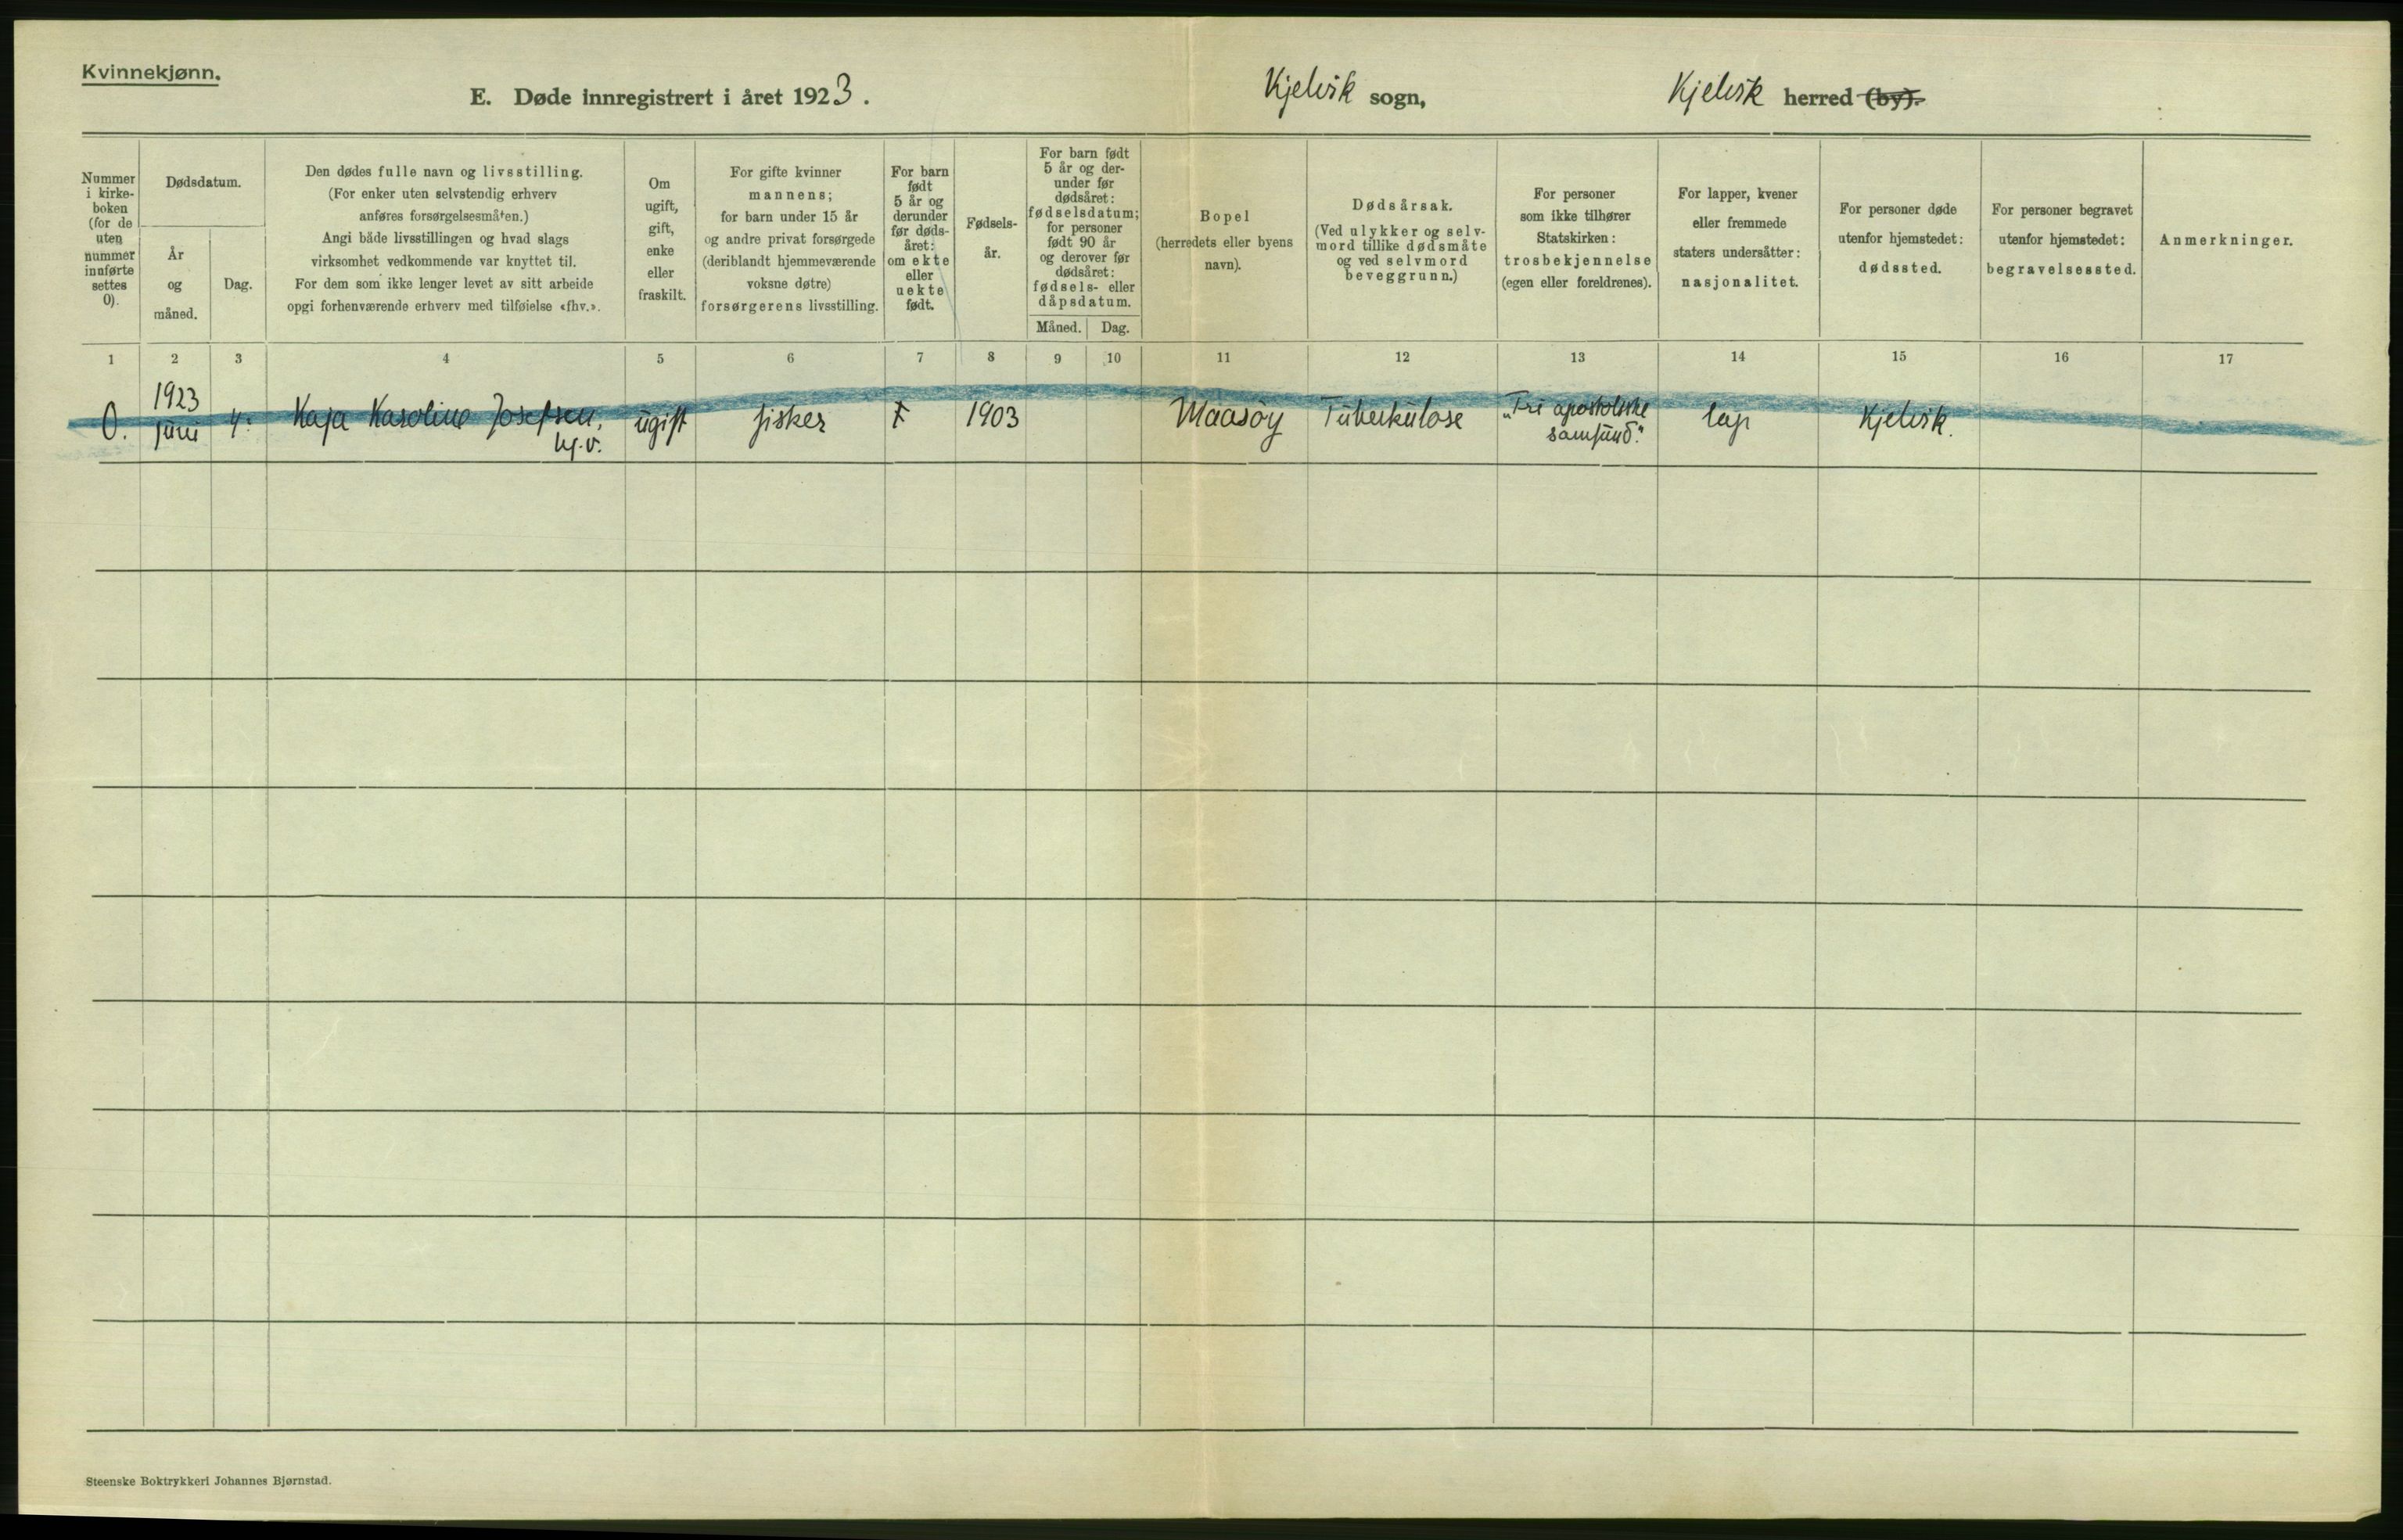 Kvinnekjønn.
E. Døde innregistrert i året 1923.
Kjelvik sogn,
Kjelvik herred (by).
Nummer
i kirke-
boken
(for de
uten
nummer
innførte
settes
0).
Dødsdatum.
År
og
måned.
Dag.
Den dødes fulle navn og livsstilling.
(For enker uten selvstendig erhverv
anføres forsørgelsesmåten.)
Angi både livsstillingen og hvad slags
virksomhet vedkommende var knyttet til.
For dem som ikke lenger levet av sitt arbeide
opgi forhenværende erhverv med tilføielse «fhv.».
Om
ugift,
gift,
enke
eller
fraskilt.
For gifte kvinner
mannens;
for barn under 15 år
og andre privat forsørgede
(deriblandt hjemmeværende
voksne døtre)
forsørgerens livsstilling.
For barn
født
5 år og
derunder
før døds-
året:
om ekte
eller
uekte
født.
Fødsels-
år.
For barn født
5 år og der-
under før
dødsåret:
fødselsdatum;
for personer
født 90 år
og derover før
dødsåret:
fødsels- eller
dåpsdatum.
Måned. Dag.
Bopel
(herredets eller byens
navn).
Dødsårsak.
(Ved ulykker og selv-
mord tillike dødsmåte
og ved selvmord
beveggrunn.)
For personer
som ikke tilhører
Statskirken:
trosbekjennelse
(egen eller foreldrenes).
For lapper, kvener
eller fremmede
staters undersåtter:
nasjonalitet.
For personer døde
utenfor hjemstedet:
dødssted.
For personer begravet
utenfor hjemstedet:
begravelsessted.
Anmerkninger.
1 2 3 4 5 6 7 8 9 10 11 12 13 14 15 16 17
1923
0. juni 4. Kaja Karoline Josefsen, ugift fisker 1903 Maasöy Tuberkulose "Fri apostoliske lap Kjelvik.
hj.v. samfund."
Steenske Boktrykkeri Johannes Bjørnstad.